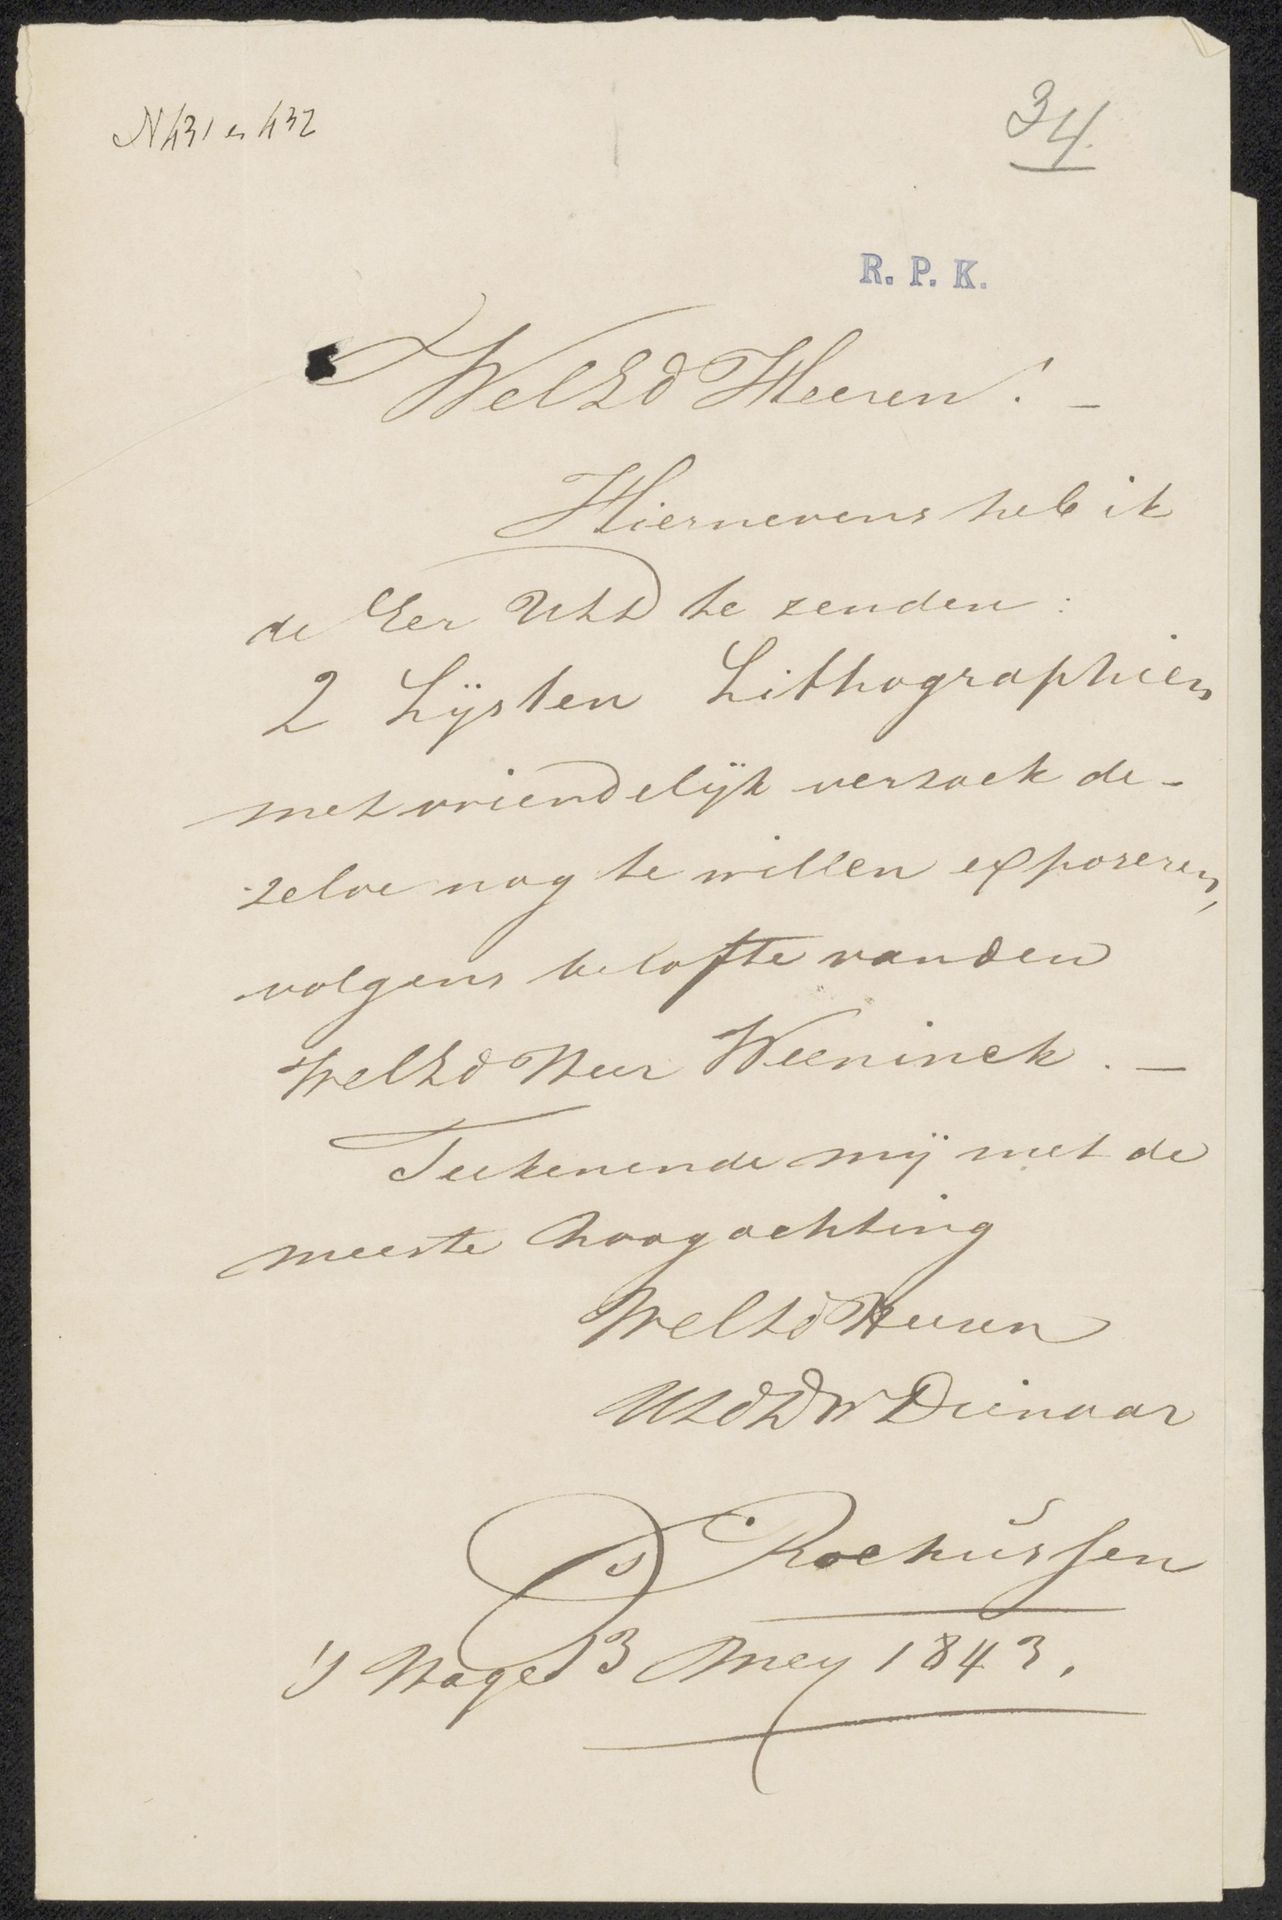 N 431 en 432
34.
R. P. K.
WelEd Heeren! -
Hiernevens heb ik
de Eer UEd te zenden:
2 Lijsten Lithographien
met vriendelijk verzoek de-
zelve nog te willen exposeren,
volgens belofte van den
WelEd Heer Weeninck. -
Teekenende mij met de
meeste hoogachting
WelEd Heeren
UEdDW Dienaar
Rochussen
's Hage 3 Mey 1843.